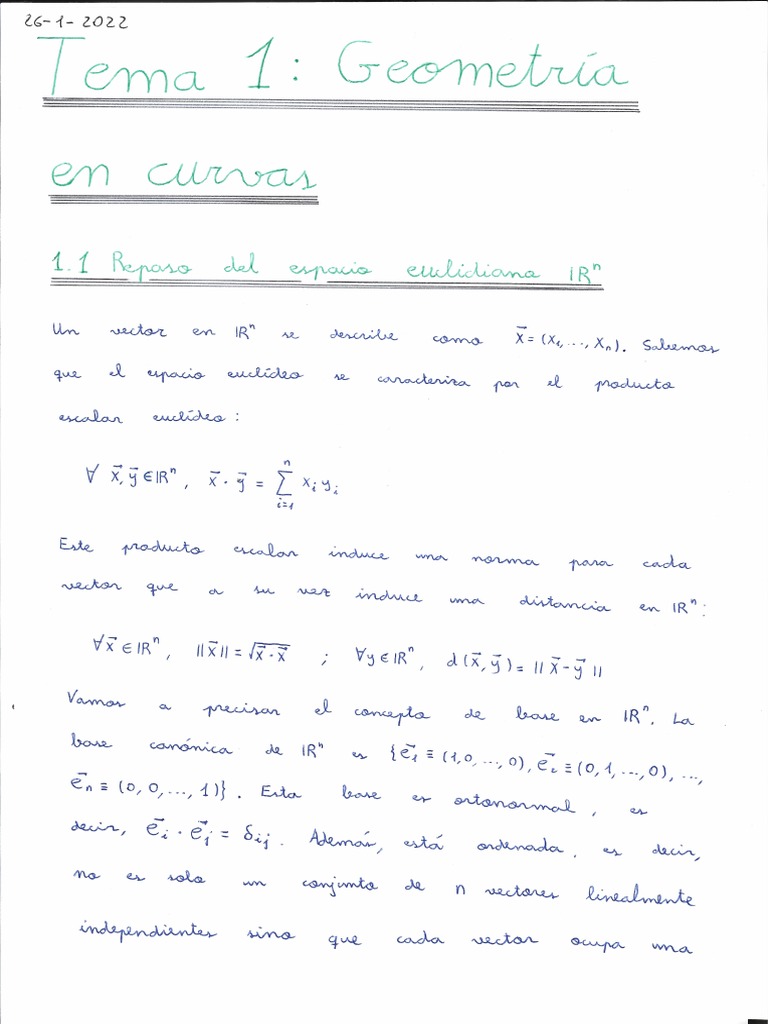 26-1-2022
Tema 1: Geometría
en curvas
1.1 Repaso del espacio euclidiana ℝⁿ
Un vector en ℝⁿ se describe como x⃗ = (x₁, ..., xₙ). Sabemos
que el espacio euclídeo se caracteriza por el producto
escalar euclídeo:
∀ x⃗, y⃗ ∈ ℝⁿ, x⃗ · y⃗ = ∑ᵢ₌₁ⁿ xᵢ yᵢ
Este producto escalar induce una norma para cada
vector que a su vez induce una distancia en ℝⁿ:
∀x⃗ ∈ ℝⁿ, ||x⃗|| = √(x⃗ · x⃗) ; ∀y ∈ ℝⁿ, d(x⃗, y⃗) = ||x⃗ - y⃗||
Vamos a precisar el concepto de base en ℝⁿ. La
base canónica de ℝⁿ es {e⃗₁ ≡ (1,0, ..., 0), e⃗₂ ≡ (0, 1, ..., 0), ...,
e⃗ₙ ≡ (0, 0, ..., 1)}. Esta base es ortonormal, es
decir, e⃗ᵢ · e⃗ⱼ = δᵢⱼ. Además, está ordenada, es decir,
no es solo un conjunto de n vectores linealmente
independientes sino que cada vector ocupa una